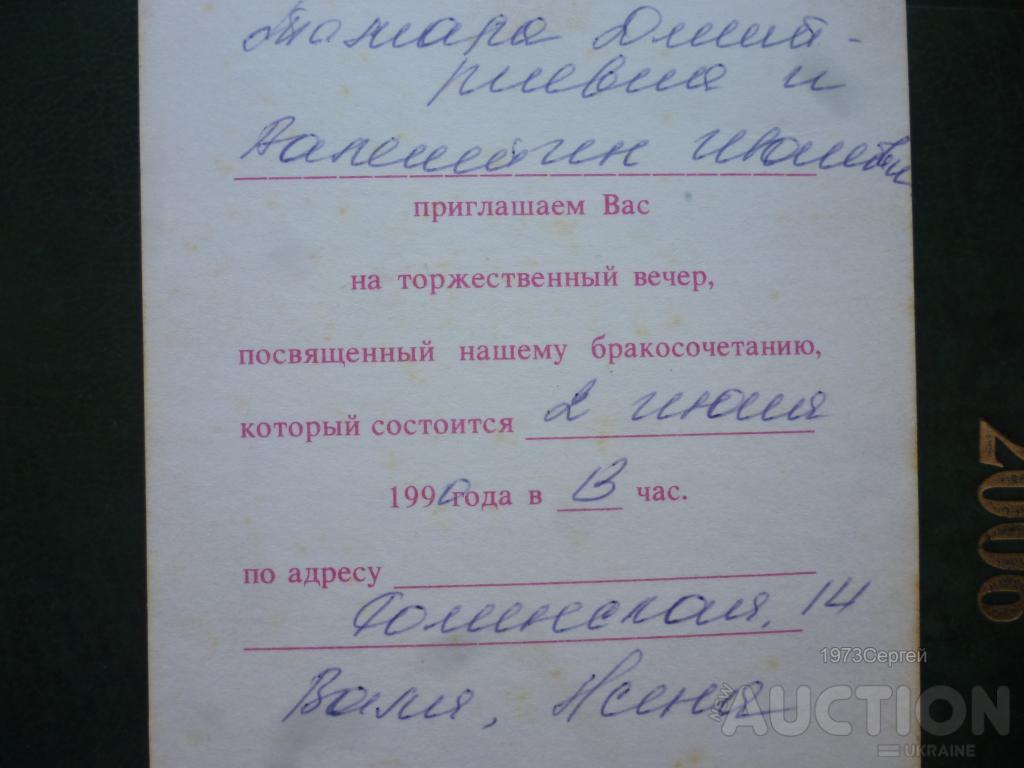 Тамара Дмит-
риевна и
Валентин Иванович
приглашаем Вас
на торжественный вечер,
посвященный нашему бракосочетанию,
который состоится 2 июня
1990 года в 13 час.
по адресу
14
Валя, Ксеня
2000
1973Сергей
NEW AUCTION
UKRAINE